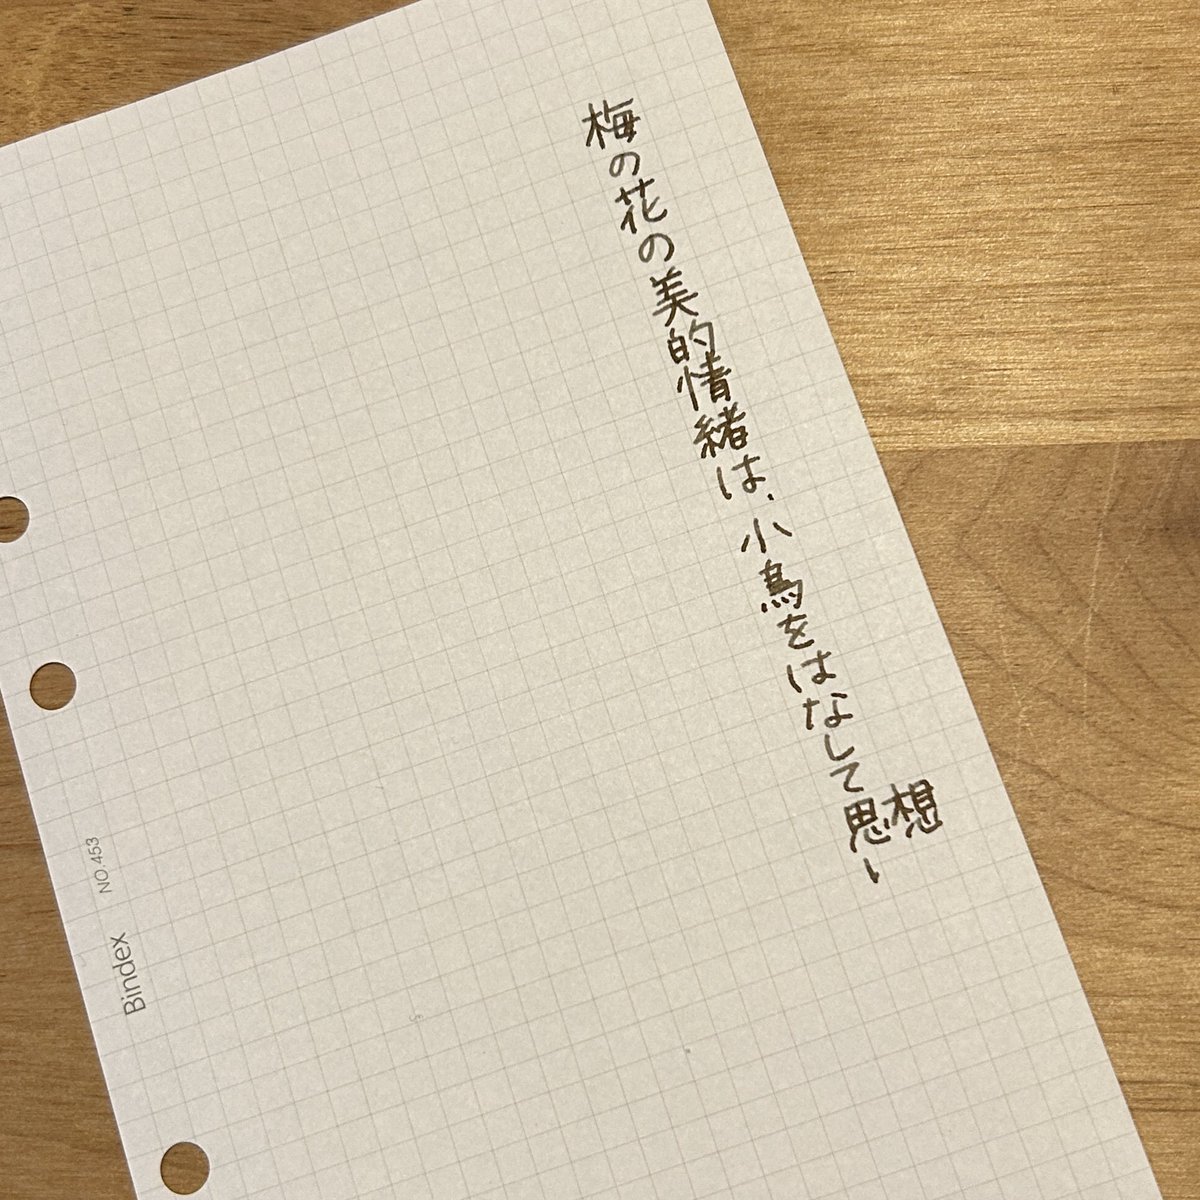 梅の花の美的情緒は、小鳥をはなして思
想
Bindex NO.453